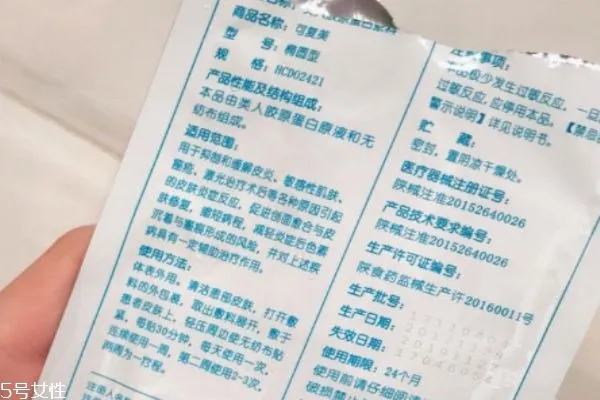 商品名称：可复美
型 号：椭圆型
规 格：HCD02421
产品性能及结构组成：
本品由类人胶原蛋白原液和无
纺布组成。
适用范围：
用于抑制和缓解皮炎、敏感性肌肤、
痤疮、激光治疗术后等各种原因引起
的皮肤炎症反应，促进创面愈合与皮
肤修复，缩短病程，减轻炎症后色素
沉着与瘢痕形成的风险，并对上述疾
病具有一定辅助治疗作用。
使用方法：
体表外用。清洁患部皮肤，打开敷
料的外包装，取出敷料展开，敷于
患者皮肤上，轻压周边使无纺布贴
紧，每贴30分钟，每天使用一次，
连续使用一周，第二周使用2-3次，
两周为一疗程。
注册人名称
注意事项：
本品极少发生过敏反应，一旦
过敏反应，应停用本品。
警示说明】详见说明书。
贮 藏：
密封，置阴凉干燥处。
医疗器械注册证号：
陕械注准20152640026
产品技术要求编号：
陕械注准20152640026
生产许可证编号：
陕食药监械生产许20160011号
生产批号
生产日期：
失效日期：
使用期限：24个月
使用前请仔细阅读
破损禁止
5号女性